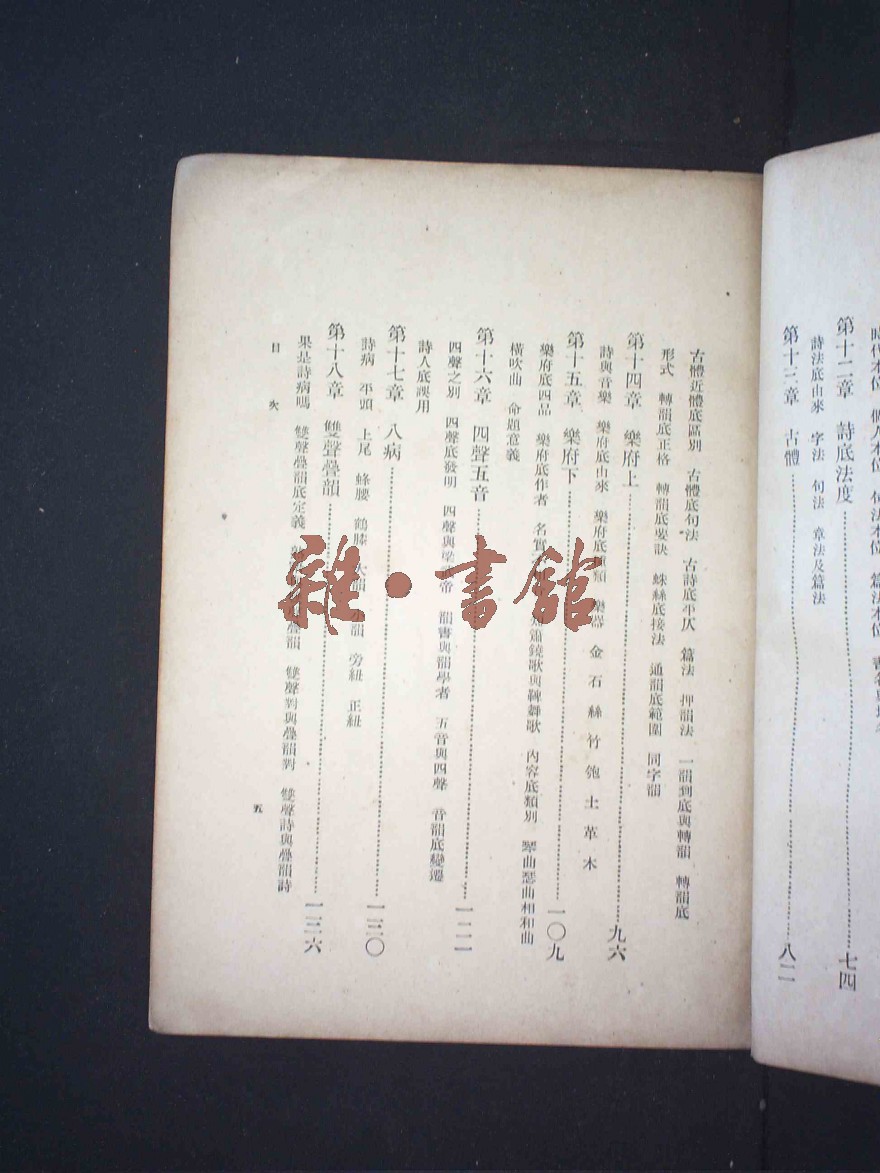 時代本位　個人本位　句法本位　篇法本位
第十二章　詩底法度……七四
詩法底由來　字法　句法　章法及篇法
第十三章　古體……八二
古體近體底區別　古體底句法　古詩底平仄　篇法　押韻法　一韻到底與轉韻　轉韻底
形式　轉韻底正格　轉韻底要訣　蛛絲底接法　通韻底範圍　同字韻
第十四章　樂府上……九六
詩與音樂　樂府底由來　樂府底　類　樂器　金　石　絲　竹　匏　土　革　木
第十五章　樂府下……一〇九
樂府底四品　樂府底作者　名實　簫鐃歌與鞞舞歌　內容底類別　琴曲瑟曲相和曲
橫吹曲　命題意義
第十六章　四聲五音……一二一
四聲之別　四聲底發明　四聲與梁　帝　韻書與韻學者　五音與四聲　音韻底變遷
詩人底誤用
第十七章　八病……一三〇
詩病　平頭　上尾　蜂腰　鶴膝　大韻　小韻　旁紐　正紐
第十八章　雙聲疊韻……一三六
果是詩病嗎　雙聲疊韻底定義　疊韻　雙聲對與疊韻對　雙聲詩與疊韻詩
目　次
五
雜·書館